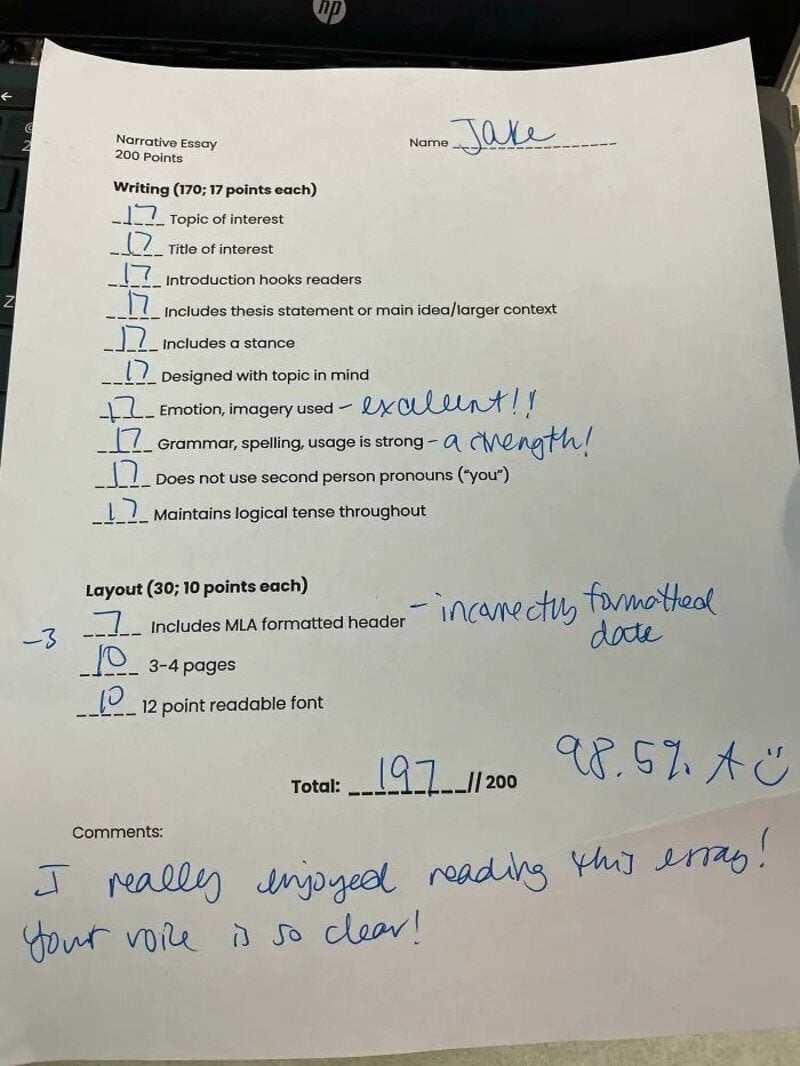 hp
Narrative Essay
200 Points
Name Jake
Writing (170; 17 points each)
17 Topic of interest
17 Title of interest
17 Introduction hooks readers
17 Includes thesis statement or main idea/larger context
17 Includes a stance
17 Designed with topic in mind
17 Emotion, imagery used - excellent!!
17 Grammar, spelling, usage is strong - a strength!
17 Does not use second person pronouns ("you")
17 Maintains logical tense throughout
Layout (30; 10 points each)
-3 7 Includes MLA formatted header - incorrectly formatted
date
10 3-4 pages
10 12 point readable font
Total: 197 // 200 98.5% A
Comments:
I really enjoyed reading this essay!
Your voice is so clear!